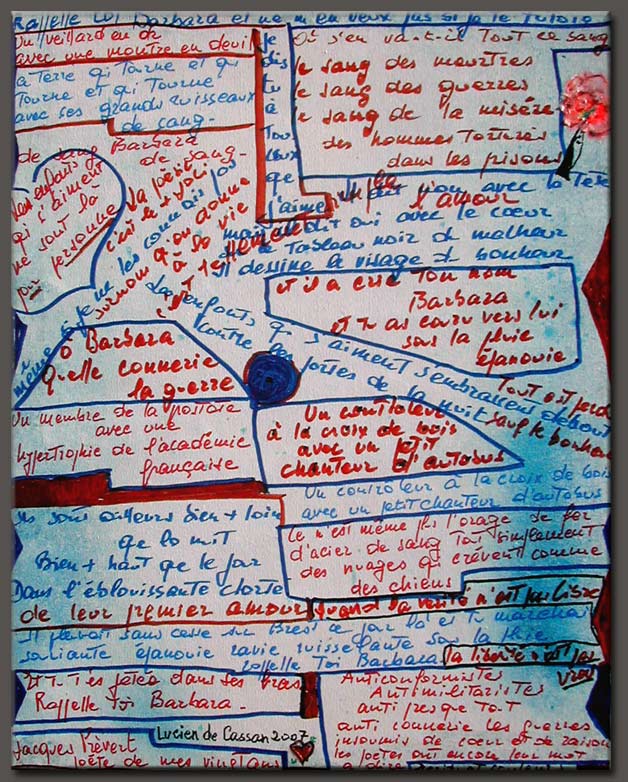 Rappelle toi Barbara et ne m'en veux pas si je te tutoie
Un veillard en or
avec une montre en deuil
la Terre qui Tourne et qui
Tourne et qui Tourne
avec ses grands ruisseaux
de sang.
Je
dis
tu
à
Tous
ceux
que
j'aime
Où s'en va-t-il Tout ce sang
le sang des meurtres
le sang des guerres
le sang de la misère
des hommes Torturés
dans les prisons
de sang Barbara
de sang
Les enfants
qui s'aiment
ne sont là
pour
personne
La poésie
c'est le + joli
surnom qu'on donne
à la vie
même si je ne les connais pas
non avec la Tête
l'amour
mais il dit oui avec le coeur
le Tableau noir du malheur
Il dessine le visage du bonheur
et il a crié Ton nom
Barbara
et Tu as couru vers lui
sous la pluie
épanouie
Les enfants qui s'aiment s'embrassent debout
contre les portes de la nuit
Tout est perdu
sauf le bonheur
Ô Barbara
Quelle connerie
la guerre
Un membre de la postière
avec une
hypertrophie de l'académie
française
Un contrôleur
à la croix de bois
avec un petit
chanteur d'autobus
Un contrôleur à la croix de bois
avec un petit chanteur d'autobus
Ils sont ailleurs bien + loin
que la nuit
Bien + haut que le jour
Dans l'éblouissante clarté
de leur premier amour
Ce n'est même plus l'orage de fer
d'acier de sang Tout simplement
des nuages qui crèvent comme
des chiens
Quand la vérité n'est pas libre
la liberté n'est pas
vraie
Il pleuvait sans cesse sur Brest ce jour là et tu marchais
souriante épanouie ravie ruisselante sous la pluie
rappelle Toi Barbara
Et Tu T'es jetée dans ses bras
Rappelle Toi Barbara.
Anticonformistes
Antimilitaristes
anti presque Tout
anti connerie les guerres
insoumis de coeur et de raison
les poètes ont encore leur mot
à dire
Lucien de Cassan 2007
Jacques Prévert
poète de mes vingt ans